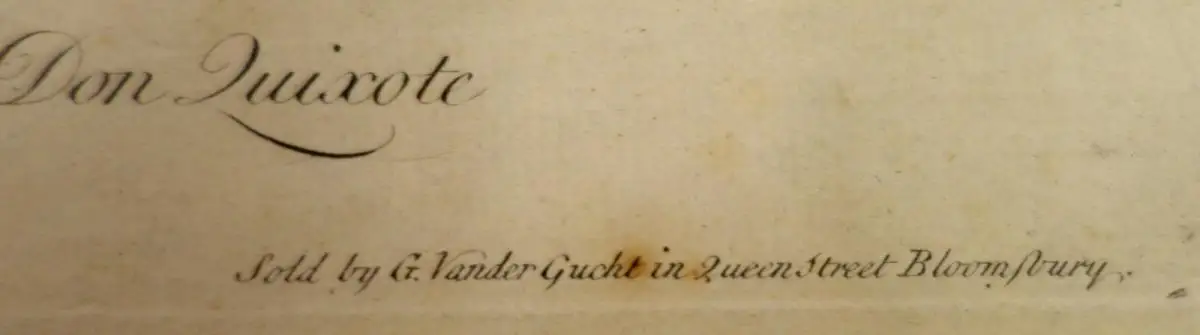 Don Quixote
Sold by G. Vander Gucht in Queen Street Bloomſbury.